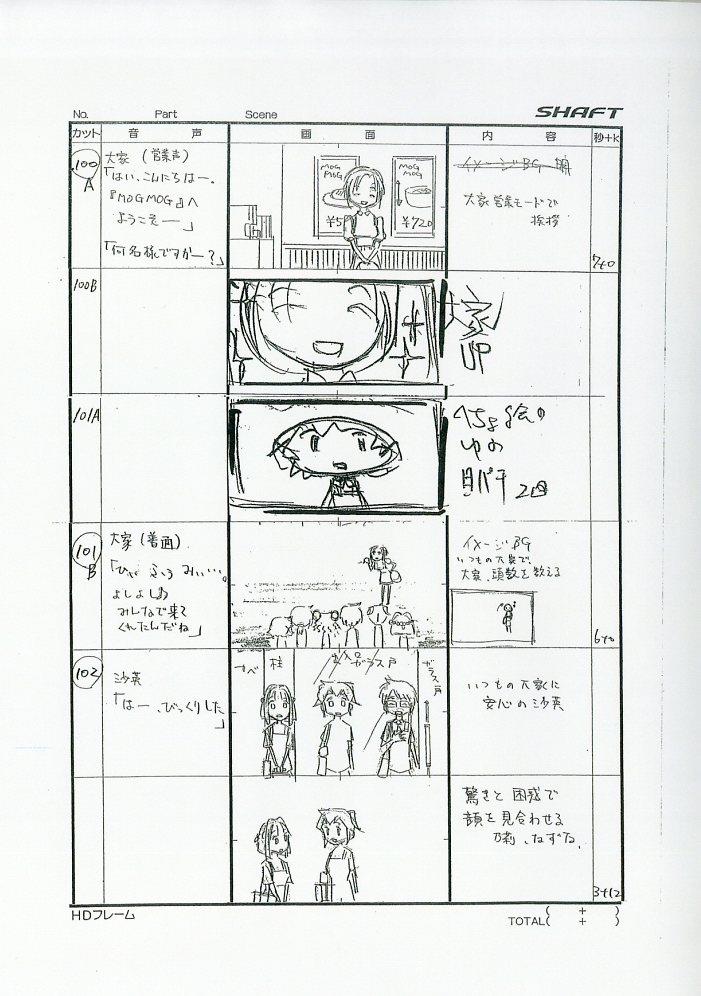 No. Part Scene SHAFT
カット 音声 画面 内容 秒+K
100
A
大家 (営業声)
「はい、こんにちはー。
『MOGMOG』へ
ようこそー」
「何名様ですかー?」
MOG
MOG
¥5
MOG
MOG
¥720
イメージBG
大家営業モードで
挨拶
7+0
100B
大家
UP
101A
へちょ絵の
ゆの
目パチ 2回
101
B
大家 (普通)
「ひぃ ふぅ みぃ・・・。
よしよし
みんなで来て
くれたんだね」
イメージBG
いつもの大家で、
大家、頭数を数える
6+0
102
沙英
「はー、びっくりした」
カベ
柱
入口ガラス戸
ガラス戸
いつもの大家に
安心の沙英
驚きと困惑で
顔を見合わせる
乃莉、なずな
3+12
HDフレーム
( + )
TOTAL( + )